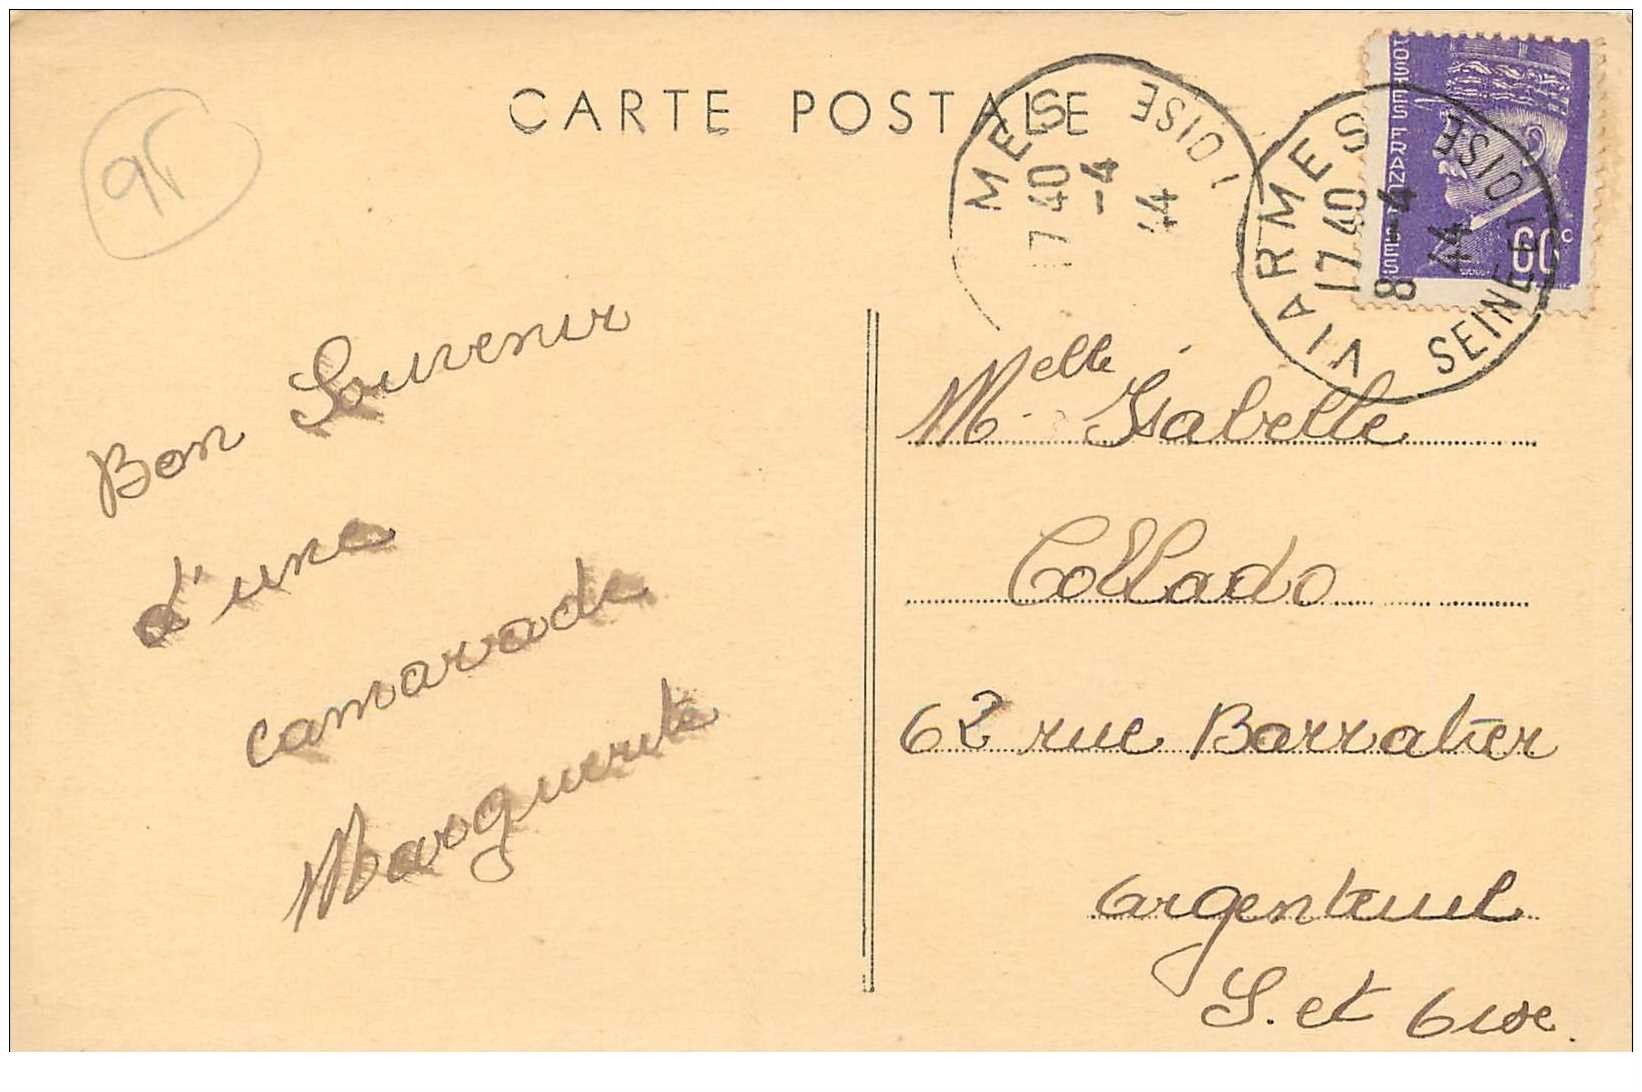 95
CARTE POSTALE
MES
17 40
-4
44
OISE
VIARMES
17 40
8 -4
44
SEINE ET OISE
POSTES FRANÇAISES
60c
Bon Souvenir
d'une
camarade
Marguerite
Melle Isabelle
Collado
62 rue Barratier
Argenteuil
S. et Oise.